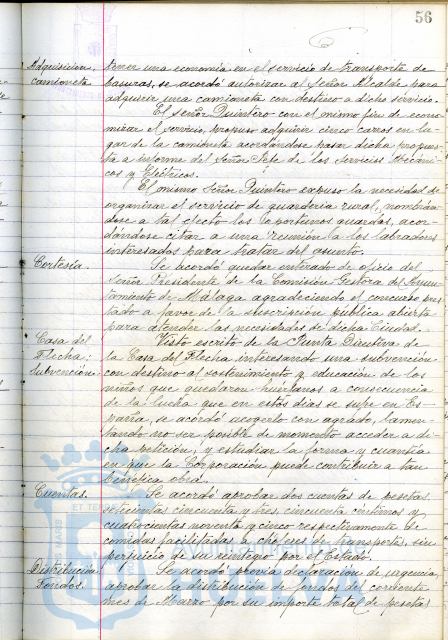 56
Adquisición
camioneta
tener una economía en el servicio de transporte de
basuras, se acordó autorizar al Señor Alcalde para
adquirir una camioneta con destino a dicho servicio.
El Señor Quintero con el mismo fin de econo-
mizar el servicio, propuso adquirir cinco carros en lu-
gar de la camioneta acordándose pasar dicha propues-
ta a informe del Señor Jefe de los Servicios Mecáni-
cos y Eléctricos.
El mismo Señor Quintero expuso la necesidad de
organizar el servicio de guardería rural, nombrán-
dose a tal efecto los oportunos guardas, acor-
dándose citar a una reunión a los labradores
interesados para tratar del asunto.
Cortesía.
Se acordó quedar enterado de oficio del
Señor Presidente de la Comisión Gestora del Ayun-
tamiento de Málaga agradeciendo el concurso pres-
tado a favor de la suscripción pública abierta
para atender las necesidades de dicha Ciudad.
Casa del
Flecha:
Subvención
Visto escrito de la Junta Directiva de
la Casa del Flecha interesando una subvención
con destino al sostenimiento y educación de los
niños que quedaron huérfanos a consecuencia
de la lucha que en estos días se sufre en Es-
paña, se acordó acogerlo con agrado, lamen-
tando no ser posible de momento acceder a di-
cha petición, y estudiar la forma y cuantía
en que la Corporación puede contribuir a tan
benéfica obra.
Cuentas.
Se acordó aprobar dos cuentas de pesetas
seiscientas cincuenta y tres, cincuenta céntimos y
cuatrocientas noventa y cinco respectivamente de
comidas facilitadas a choferes de transportes, sin
perjuicio de su reintegro por el Estado.
Distribución
Fondos.
Se acordó previa declaración de urgencia,
aprobar la distribución de fondos del corriente
mes de Marzo por su importe total de pesetas